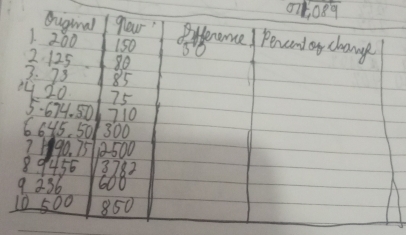 Original New Difference Percent of change
1. 200 150 50
2. 125 80
3. 73 85
4. 20 75
5. 674.50 710
6. 645.50 300
7 1990.75 2500
8. 9456 3782
9 236 600
10 500 850